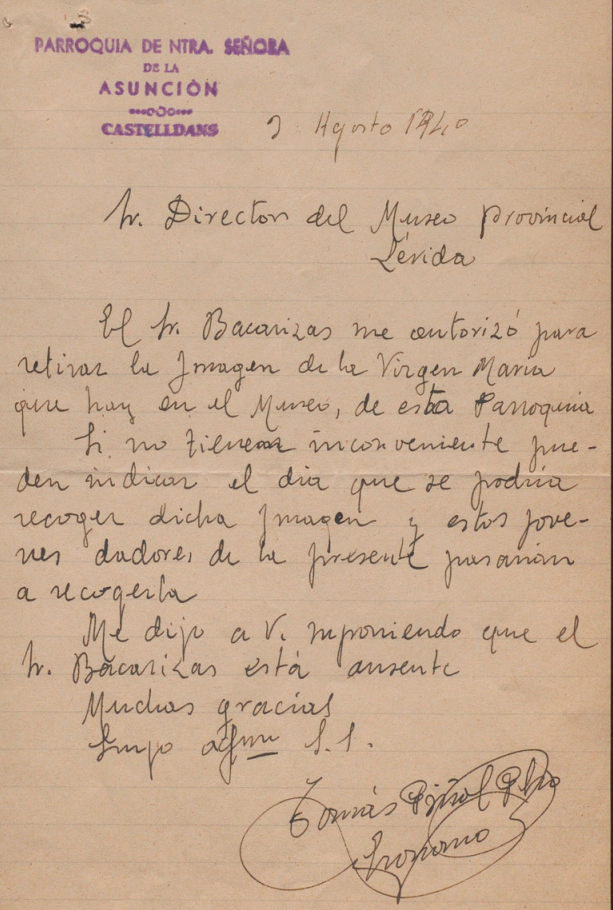 PARROQUIA DE NTRA. SEÑORA
DE LA
ASUNCIÓN
CASTELLDANS
Agosto 1940
Sr. Director del Museo Provincial
Lérida
El Sr. Bacarizas me autorizó para
retirar la Imagen de la Virgen María
que hay en el Museo, de esta Parroquia
Si no tienen inconveniente pue-
den indicar el dia que se podría
recoger dicha Imagen y estos jove-
nes dadores de la presente pasarían
a recogerla
Me dijo a V. suponiendo que el
Sr. Bacarizas está ausente
Muchas gracias
Suyo affmo S. S.
Tomás Piñol Pbro